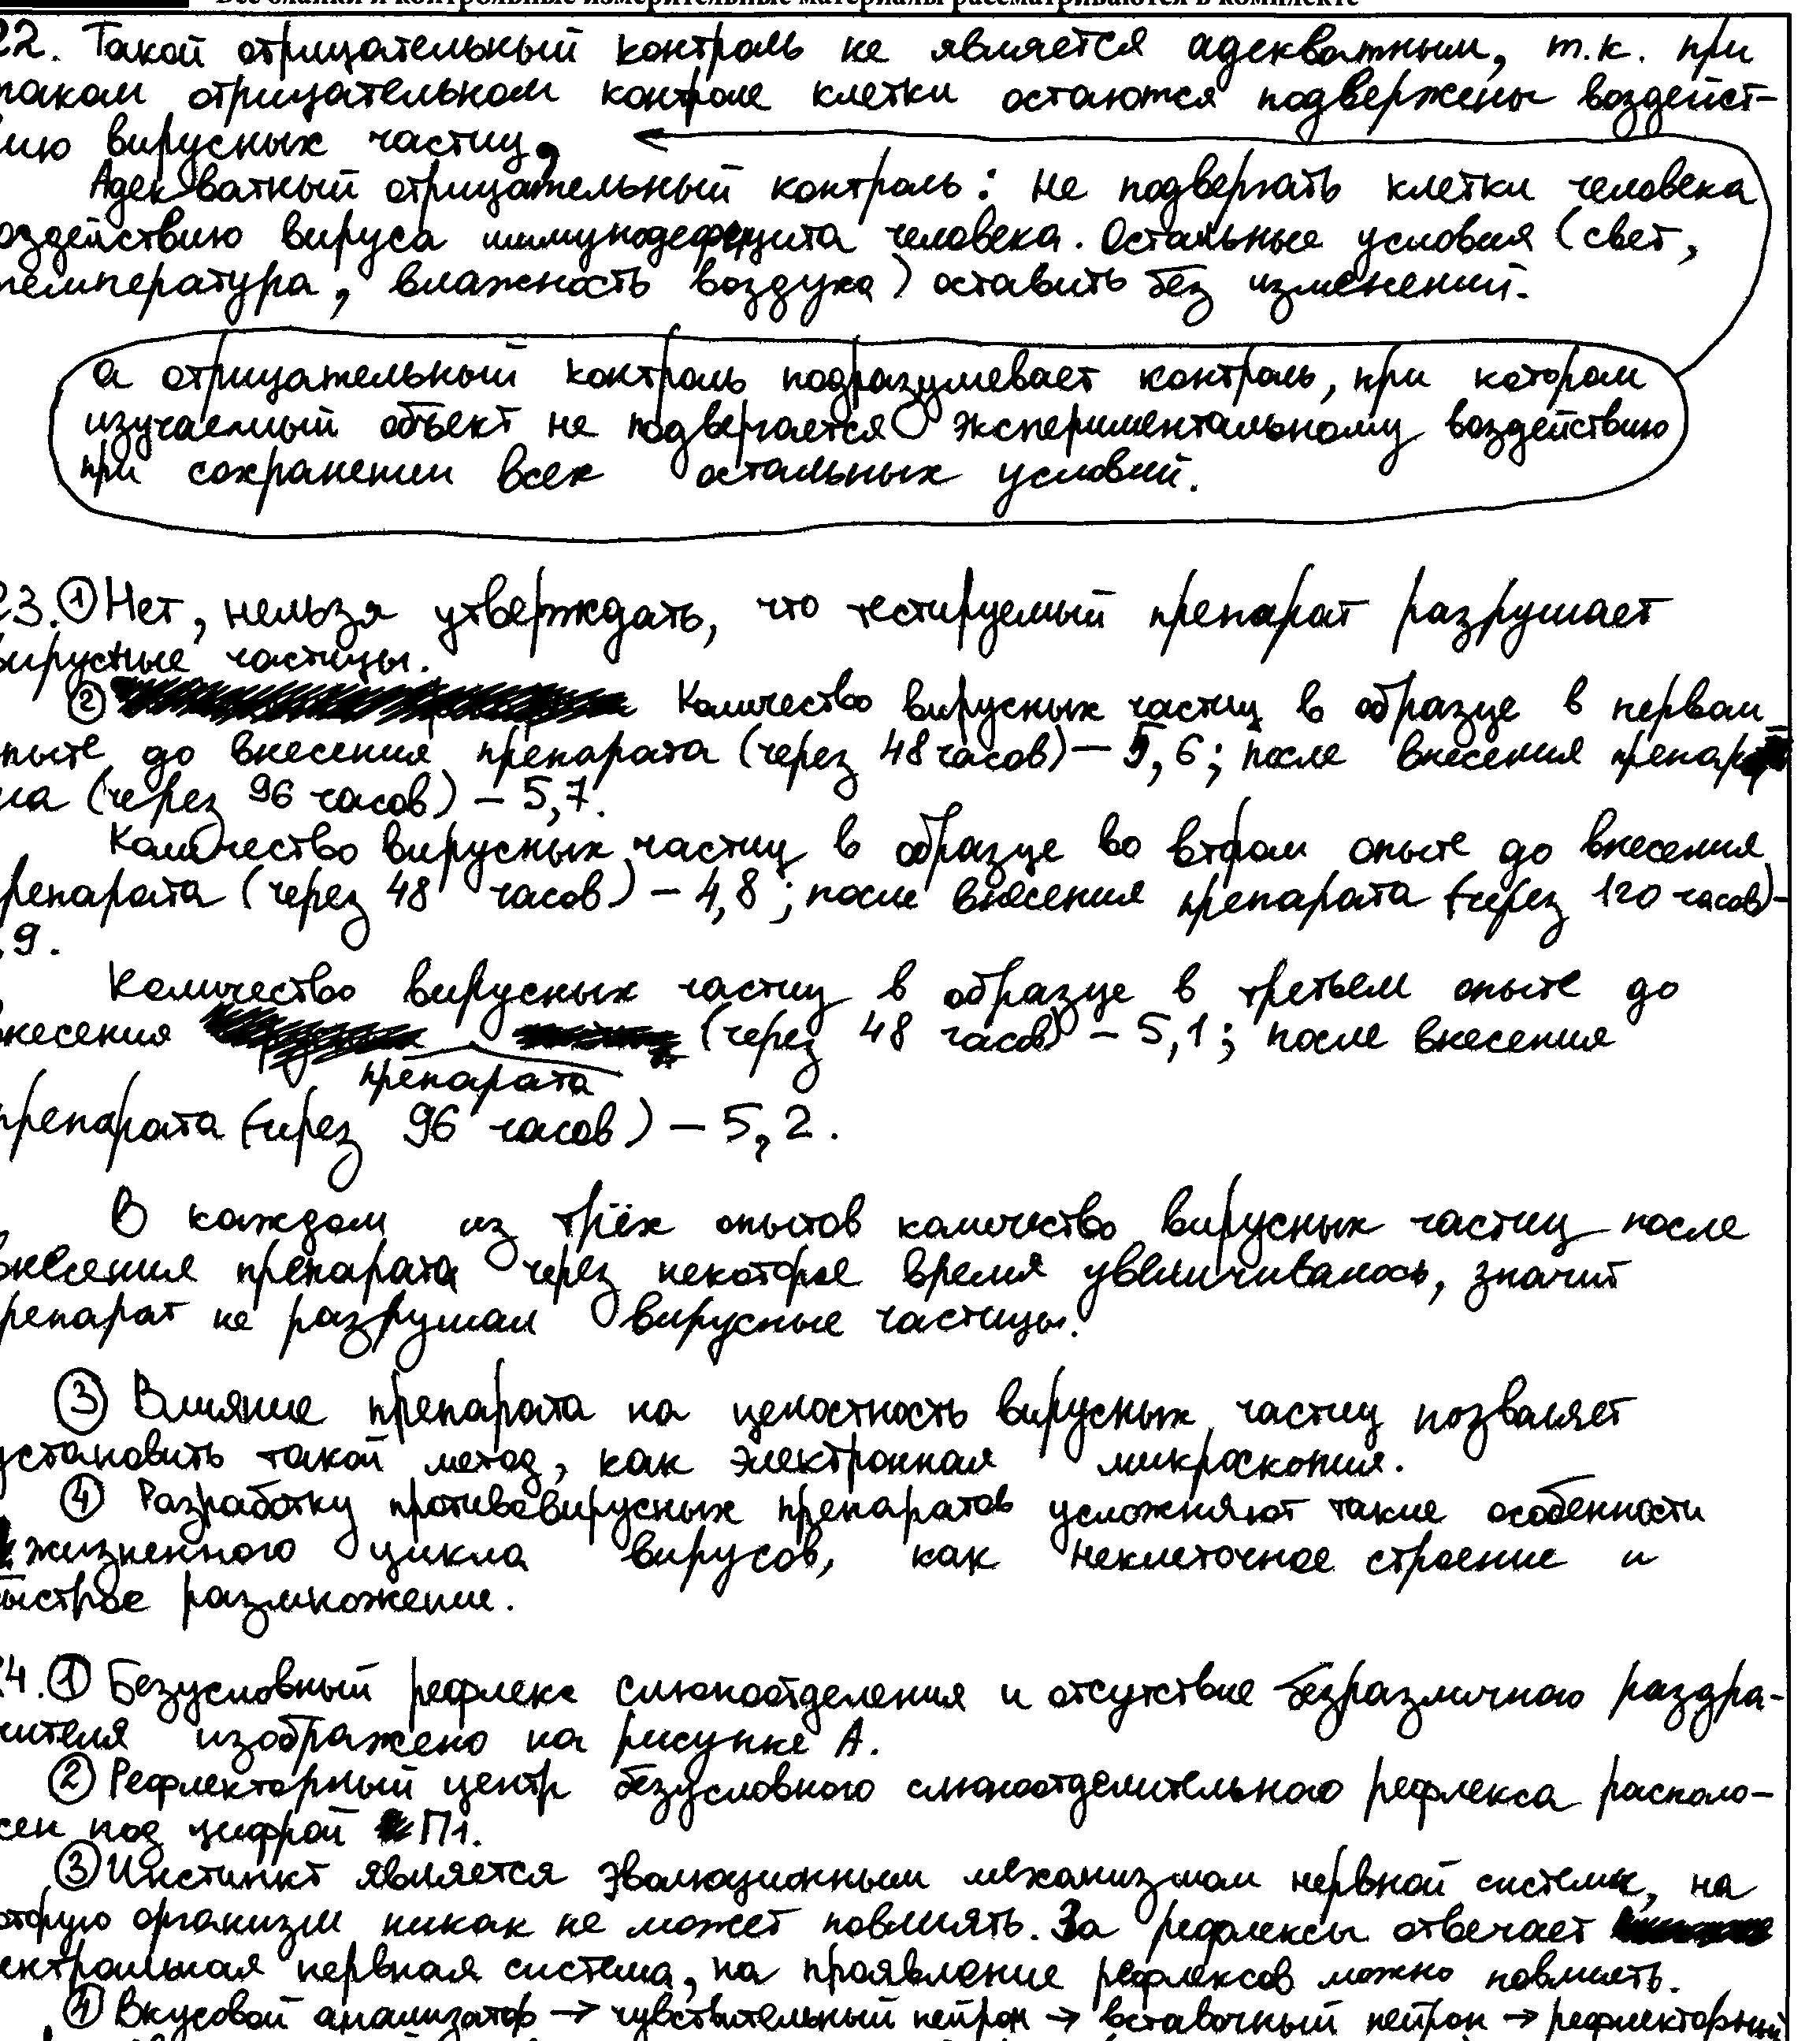 Все бланки и контрольные измерительные материалы рассматриваются в комплекте
22. Такой отрицательный контроль не является адекватным, т.к. при
таком отрицательном контроле клетки остаются подвержены воздейст-
вию вирусных частиц,
Адекватный отрицательный контроль: не подвергать клетки человека
воздействию вируса иммунодефицита человека. Остальные условия (свет,
температура, влажность воздуха) оставить без изменений.
а отрицательный контроль подразумевает контроль, при котором
изучаемый объект не подвергается экспериментальному воздействию
при сохранении всех остальных условий.
23. ① Нет, нельзя утверждать, что тестируемый препарат разрушает
вирусные частицы.
② Количество вирусных частиц в образце в первом
опыте до внесения препарата (через 48 часов) – 5,6; после внесения препара
та (через 96 часов) – 5,7.
Количество вирусных частиц в образце во втором опыте до внесения
препарата (через 48 часов) – 4,8; после внесения препарата (через 120 часов) –
,9.
Количество вирусных частиц в образце в третьем опыте до
внесения препарата (через 48 часов) – 5,1; после внесения
препарата (через 96 часов) – 5,2.
В каждом из трёх опытов количество вирусных частиц после
внесения препарата через некоторое время увеличивалось, значит
препарат не разрушал вирусные частицы.
③ Влияние препарата на целостность вирусных частиц позволяет
установить такой метод, как электронная микроскопия.
④ Разработку противовирусных препаратов усложняют такие особенности
жизненного цикла вирусов, как неклеточное строение и
быстрое размножение.
24. ① Безусловный рефлекс слюноотделения и отсутствие безразличного раздра-
жителя изображено на рисунке А.
② Рефлекторный центр безусловного слюноотделительного рефлекса располо-
жен под цифрой П1.
③ Инстинкт является эволюционным механизмом нервной системы, на
которую организм никак не может повлиять. За рефлексы отвечает
центральная нервная система, на проявление рефлексов можно повлиять.
④ Вкусовой анализатор → чувствительный нейрон → вставочный нейрон → рефлекторный